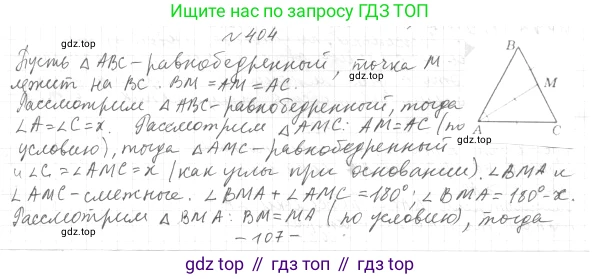 Ищите нас по запросу ГДЗ ТОП
№ 404
gdz.top
gdz.top
Пусть △ ABC - равнобедренный, точка M
лежит на BC. BM = AM = AC.
Рассмотрим △ ABC - равнобедренный, тогда
∠A = ∠C = x. Рассмотрим △ AMC: AM = AC (по
условию), тогда △ AMC - равнобедренный
и ∠C = ∠AMC = x (как углы при основании). ∠BMA и
∠AMC - смежные. ∠BMA + ∠AMC = 180°; ∠BMA = 180° - x.
Рассмотрим △ BMA: BM = MA (по условию), тогда
B
M
A
C
gdz.top
gdz.top
gdz.top
gdz.top
- 107 -
gdz.top // гдз.топ // gdz.top